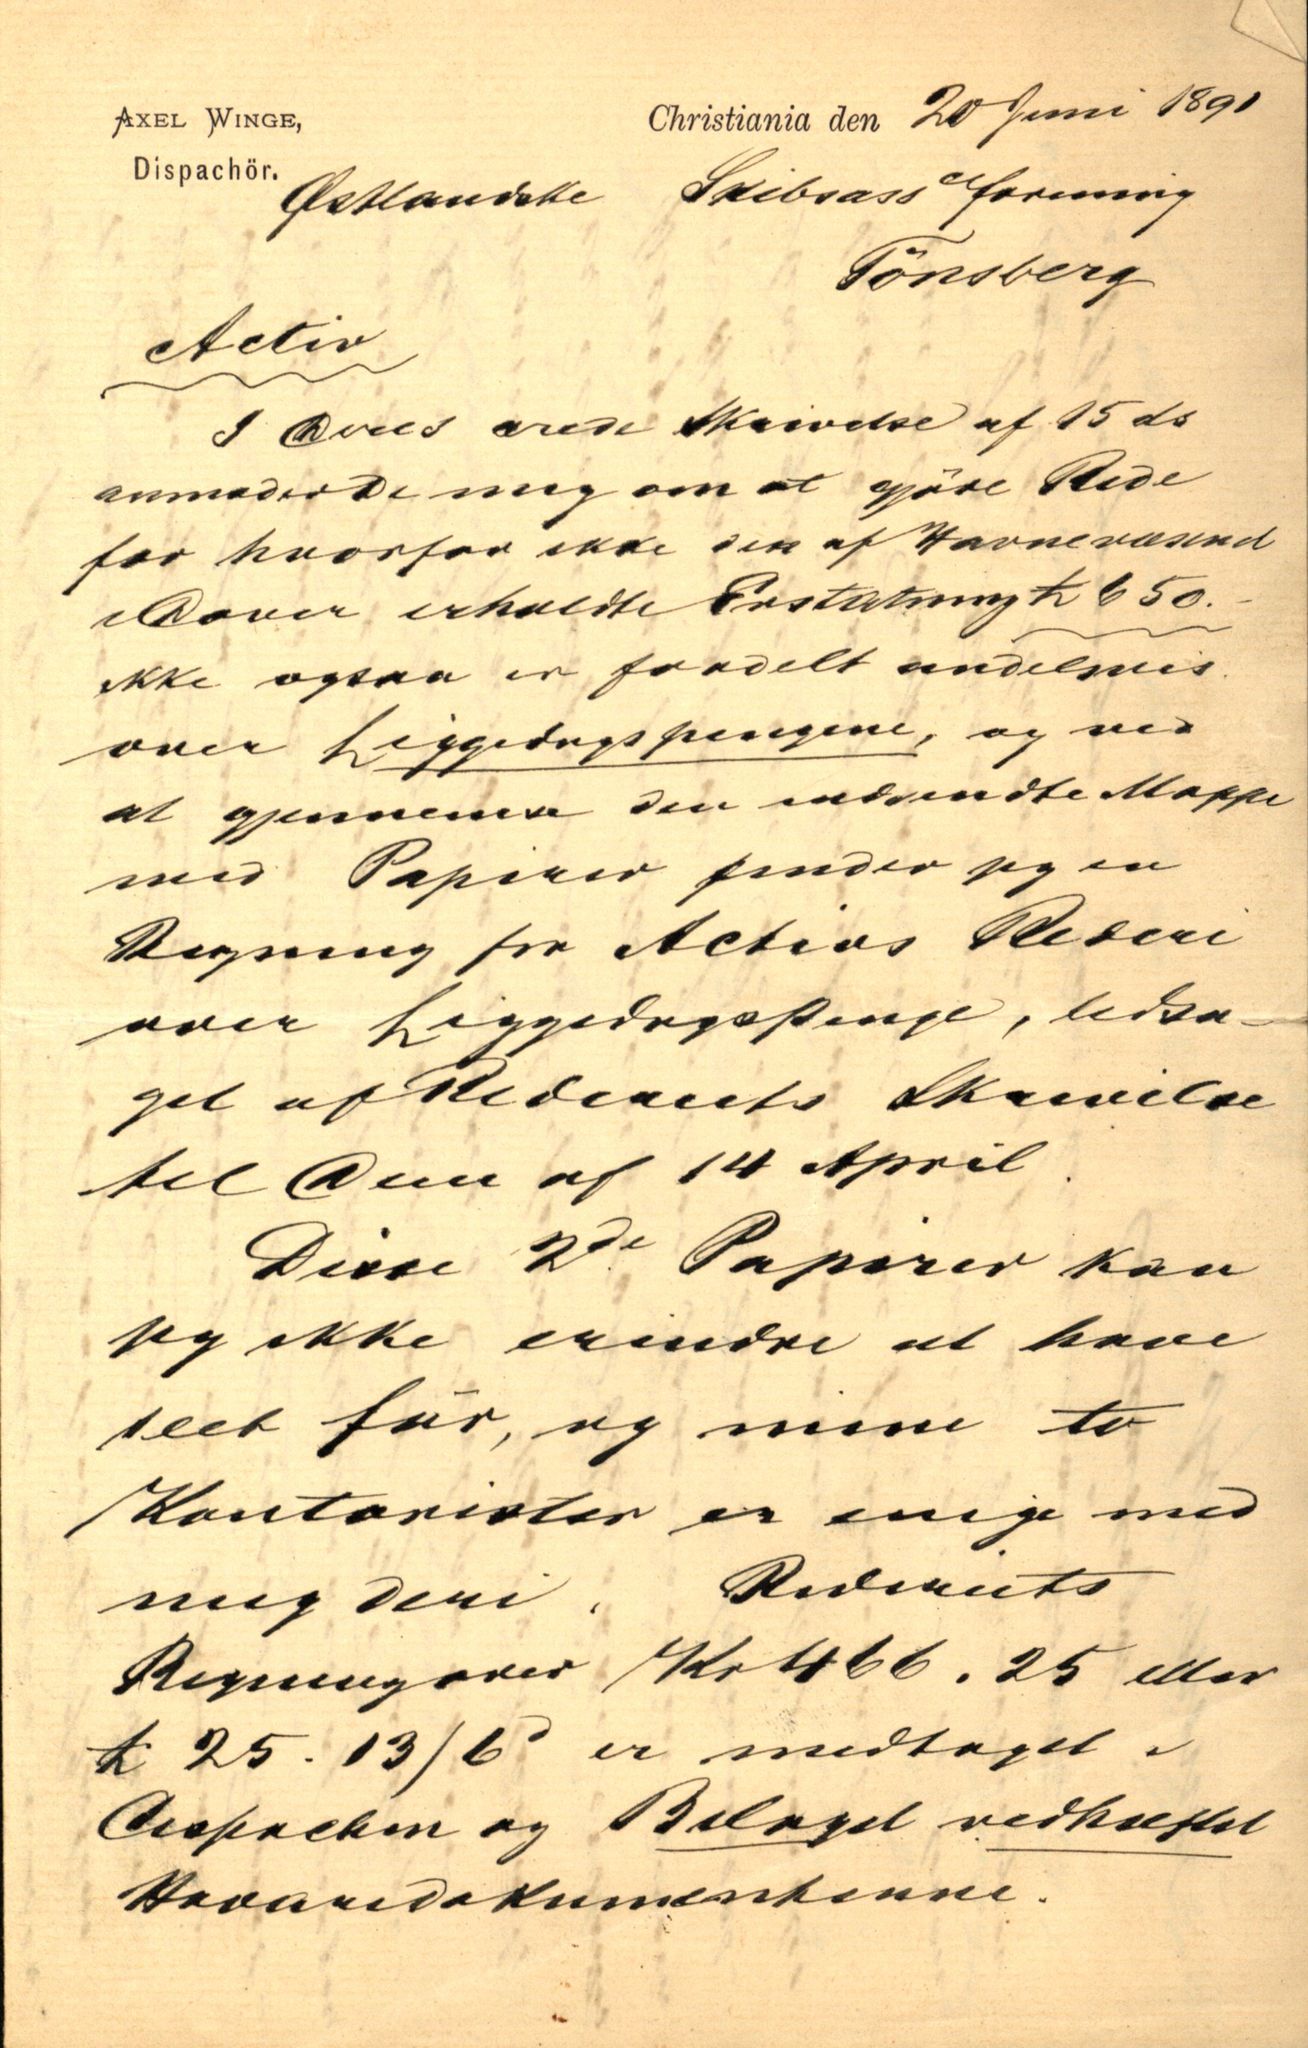 Axel Winge,
Dispachör.
Christiania den 20 Juni 1891
Østlandske Skibsassceforening
Tönsberg
Activ
I Deres ærede Skrivelse af 15 ds
anmoder De mig om at gjöre Rede
for hvorfor ikke den af Havnevæsenet
i Dover erholdte Erstatning £ 650.-
ikke ogsaa er fordelt andelsvis
over Liggedagspengene, og ved
at gjennemse den indsendte Mappe
med Papirer finder jeg en
Regning fra Activs Rederi
over Liggedagspenge, ledsa-
get af Rederiets Skrivelse
til Dem af 14 April.
Disse 2de Papirer kan
jeg ikke erindre at have
seet för, og mine to
Kontorister er enige med
mig deri. Rederiets
Regning over Kr 466.25 eller
£ 25.13/6d er medtaget i
Dispachen og Bilaget vedhæftet
Havaridokumenterne.